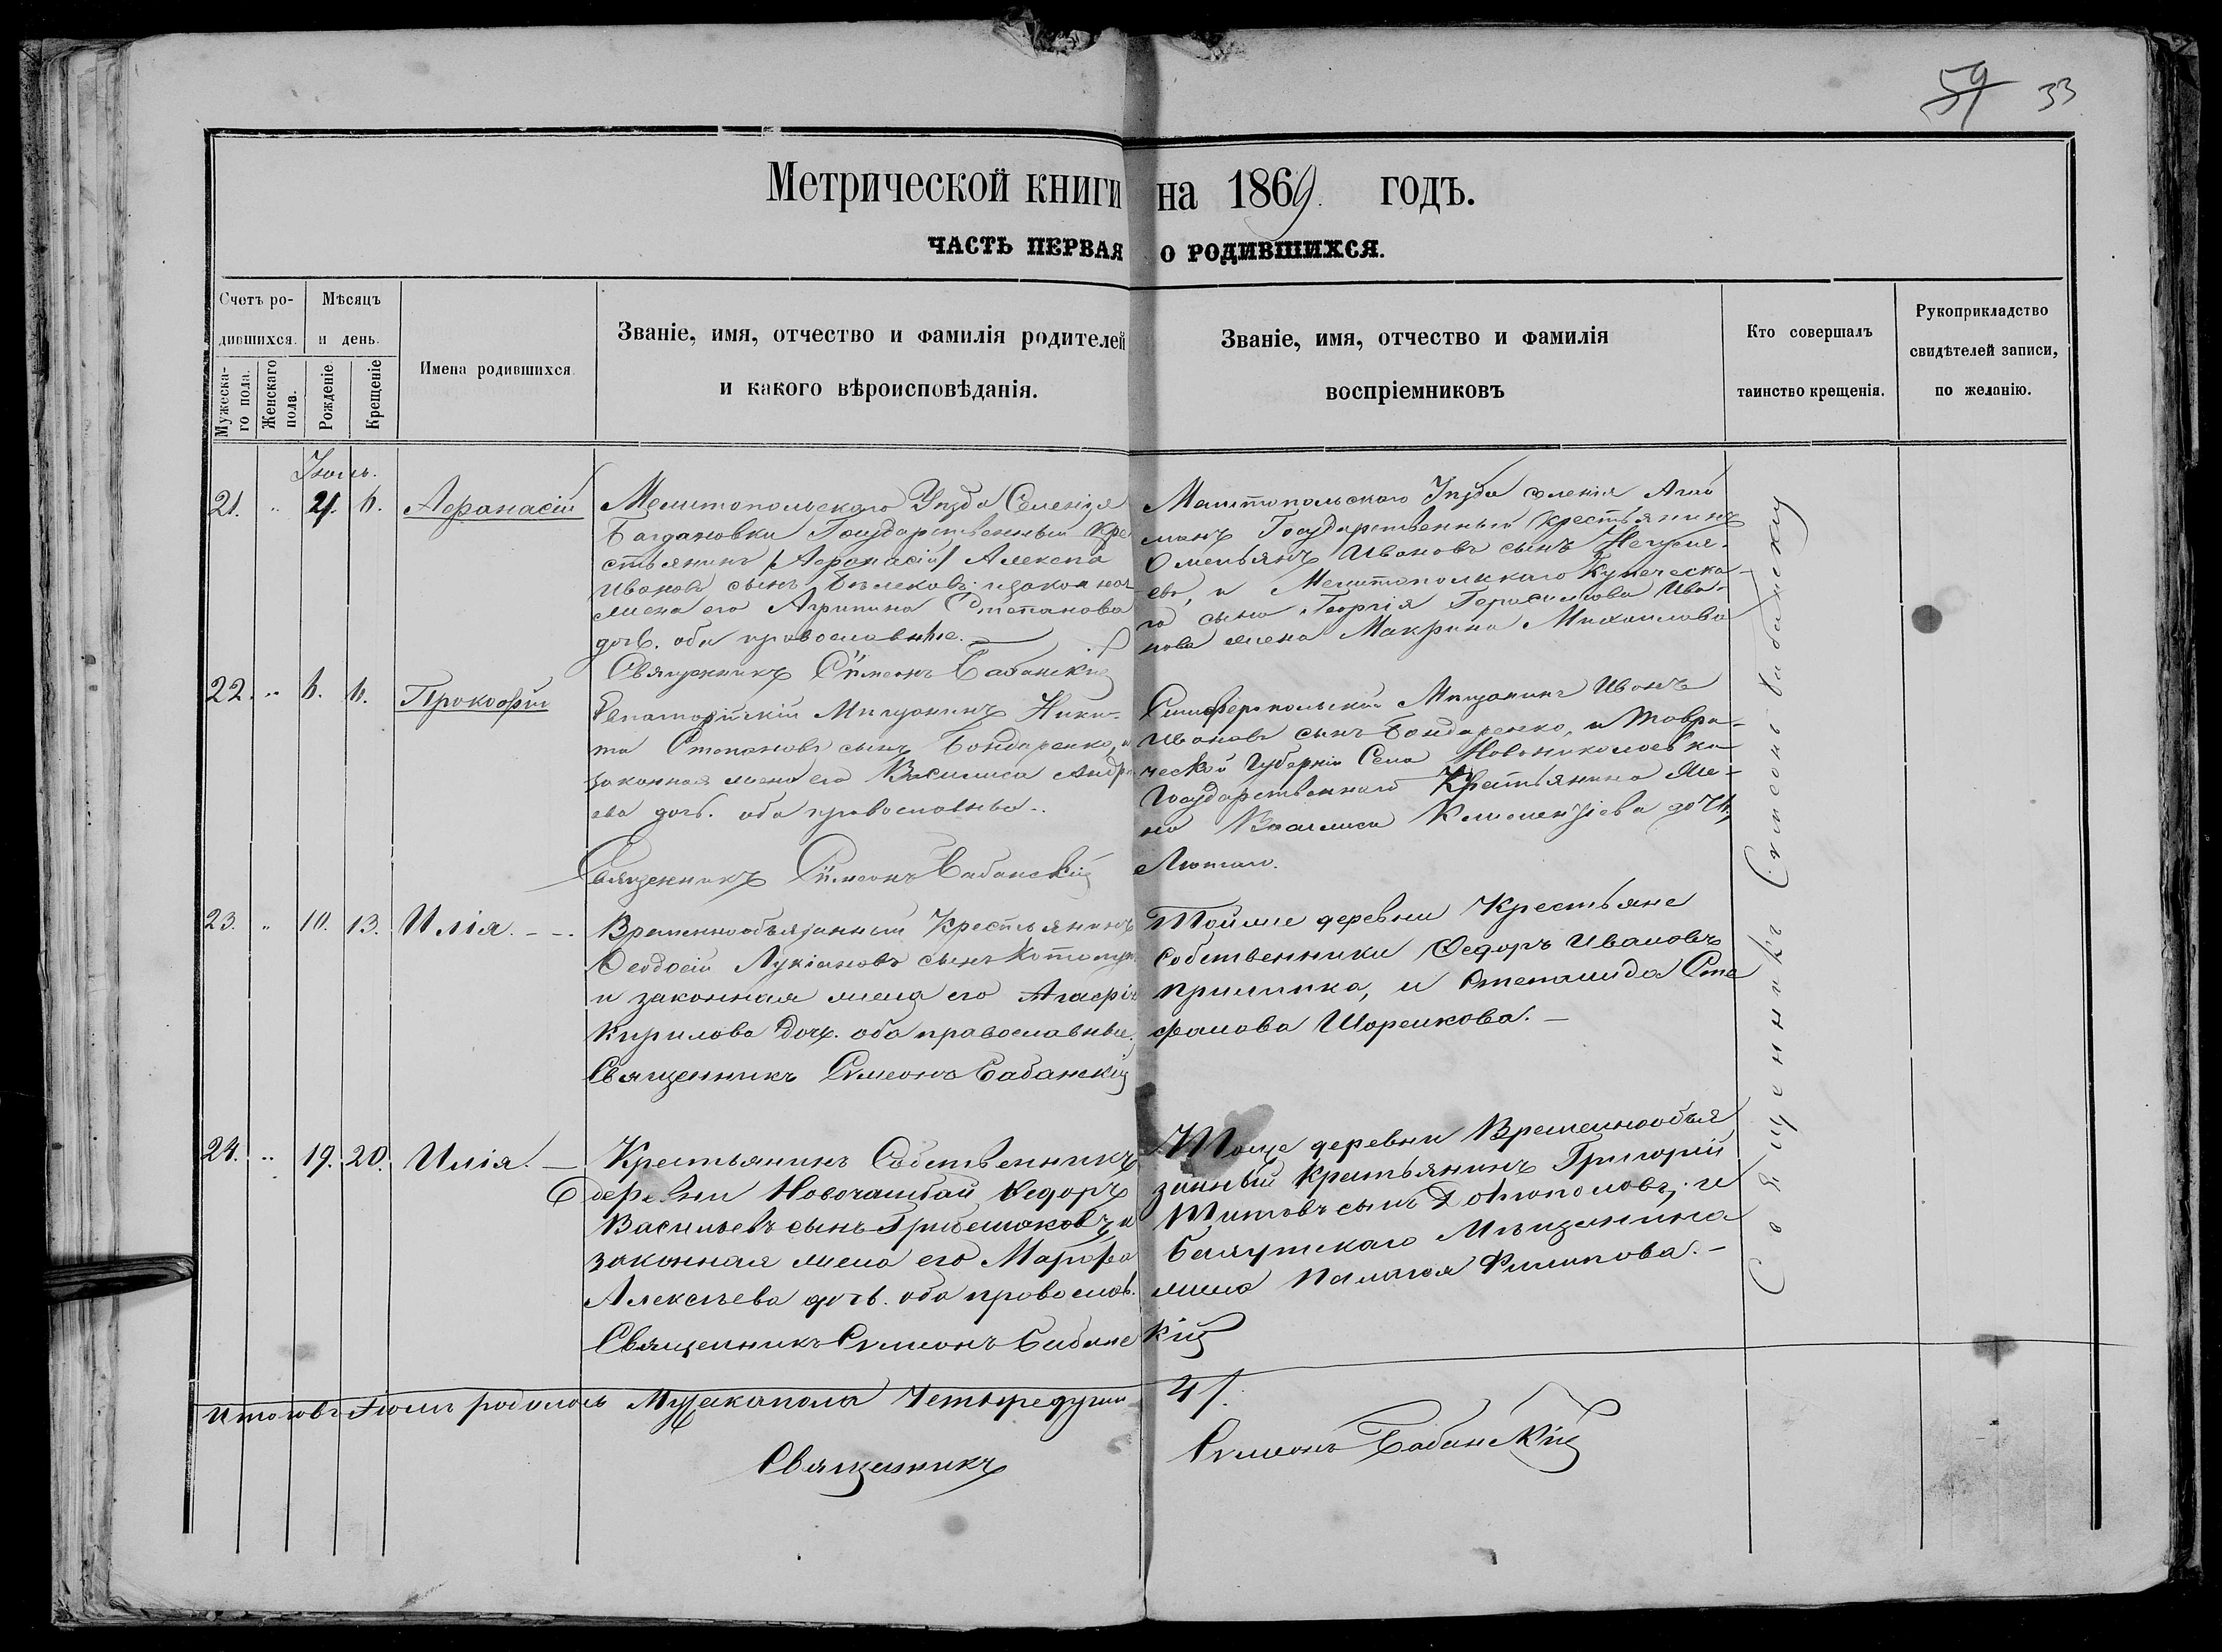 59 33
Метрической книги на 1869. годъ.
ЧАСТЬ ПЕРВАЯ О РОДИВШИХСЯ.
Счетъ ро-
дившихся.
Мужеска-
го пола.
Женскаго
пола.
Мѣсяцъ
и день.
Рожденіе.
Крещеніе
Имена родившихся
Званіе, имя, отчество и фамилія родителей
и какого вѣроисповѣданія.
Званіе, имя, отчество и фамилія
воспріемниковъ
Кто совершалъ
таинство крещенія.
Рукоприкладство
свидѣтелей записи,
по желанію.
Іюль.
21. " 6. Аѳанасій
Мелитопольскаго Уѣзда Селенія
Богдановки Государственный Кре
стьянинъ /Аѳанасій/ Алексѣй
Ивановъ сынъ и законная
жена его Агрипина Степанова
дочь. оба православные.
Священникъ Сѵмеонъ Бабанскій
Мелитопольскаго Уѣзда селенія
манъ Государственный крестьянинъ
Омельянъ Ивановъ сынъ
евъ, и Мелитопольскаго Купеческа-
го сына Георгія Герасимова Ива-
нова жена Макрина Михаилова
22. " 6. 6. Прокофій
Евпаторійскій Мѣщанинъ Ники-
та Степановъ сынъ Бондаренко, и
законная жена его Василиса Андре
ева дочь. оба православные..
Священникъ Сѵмеонъ Бабанскій
Симферопольскій Мѣщанинъ Иванъ
Ивановъ сынъ Бондаренко, и Таври-
ческой Губерніи Села Новониколаевки
Государственнаго Крестьянина же-
на Василиса Климентіева дочь,
23. " 10. 13. Илія. - -.
Временнообъязанный Крестьянинъ
Ѳеодосій Лукіановъ сынъ
и законная жена его Агафія
Кирилова дочь. оба православные.
Священникъ Сѵмеонъ Бабанскій
Тойже деревни Крестьяне
Собственники Ѳедоръ Ивановъ
и Степанида Сте
фанова
24. " 19. 20. Илія. —
Крестьянинъ Собственникъ
деревни Ѳедоръ
Васильевъ сынъ и
законная жена его Марфа
Алексѣева дочь. оба православ.
Священникъ Сѵмеонъ Бабанс кій
Тоже деревни Временнообъя
занный крестьянинъ Григорій
Титовъ сынъ и
Мѣщанина
жена Палагея Филипова. -
Священникъ Сѵмеонъ Бабанскій
Итого въ Іюлѣ родилось Мужеска пола Четыре души 4/.
Священникъ Сѵмеонъ Бабанскій